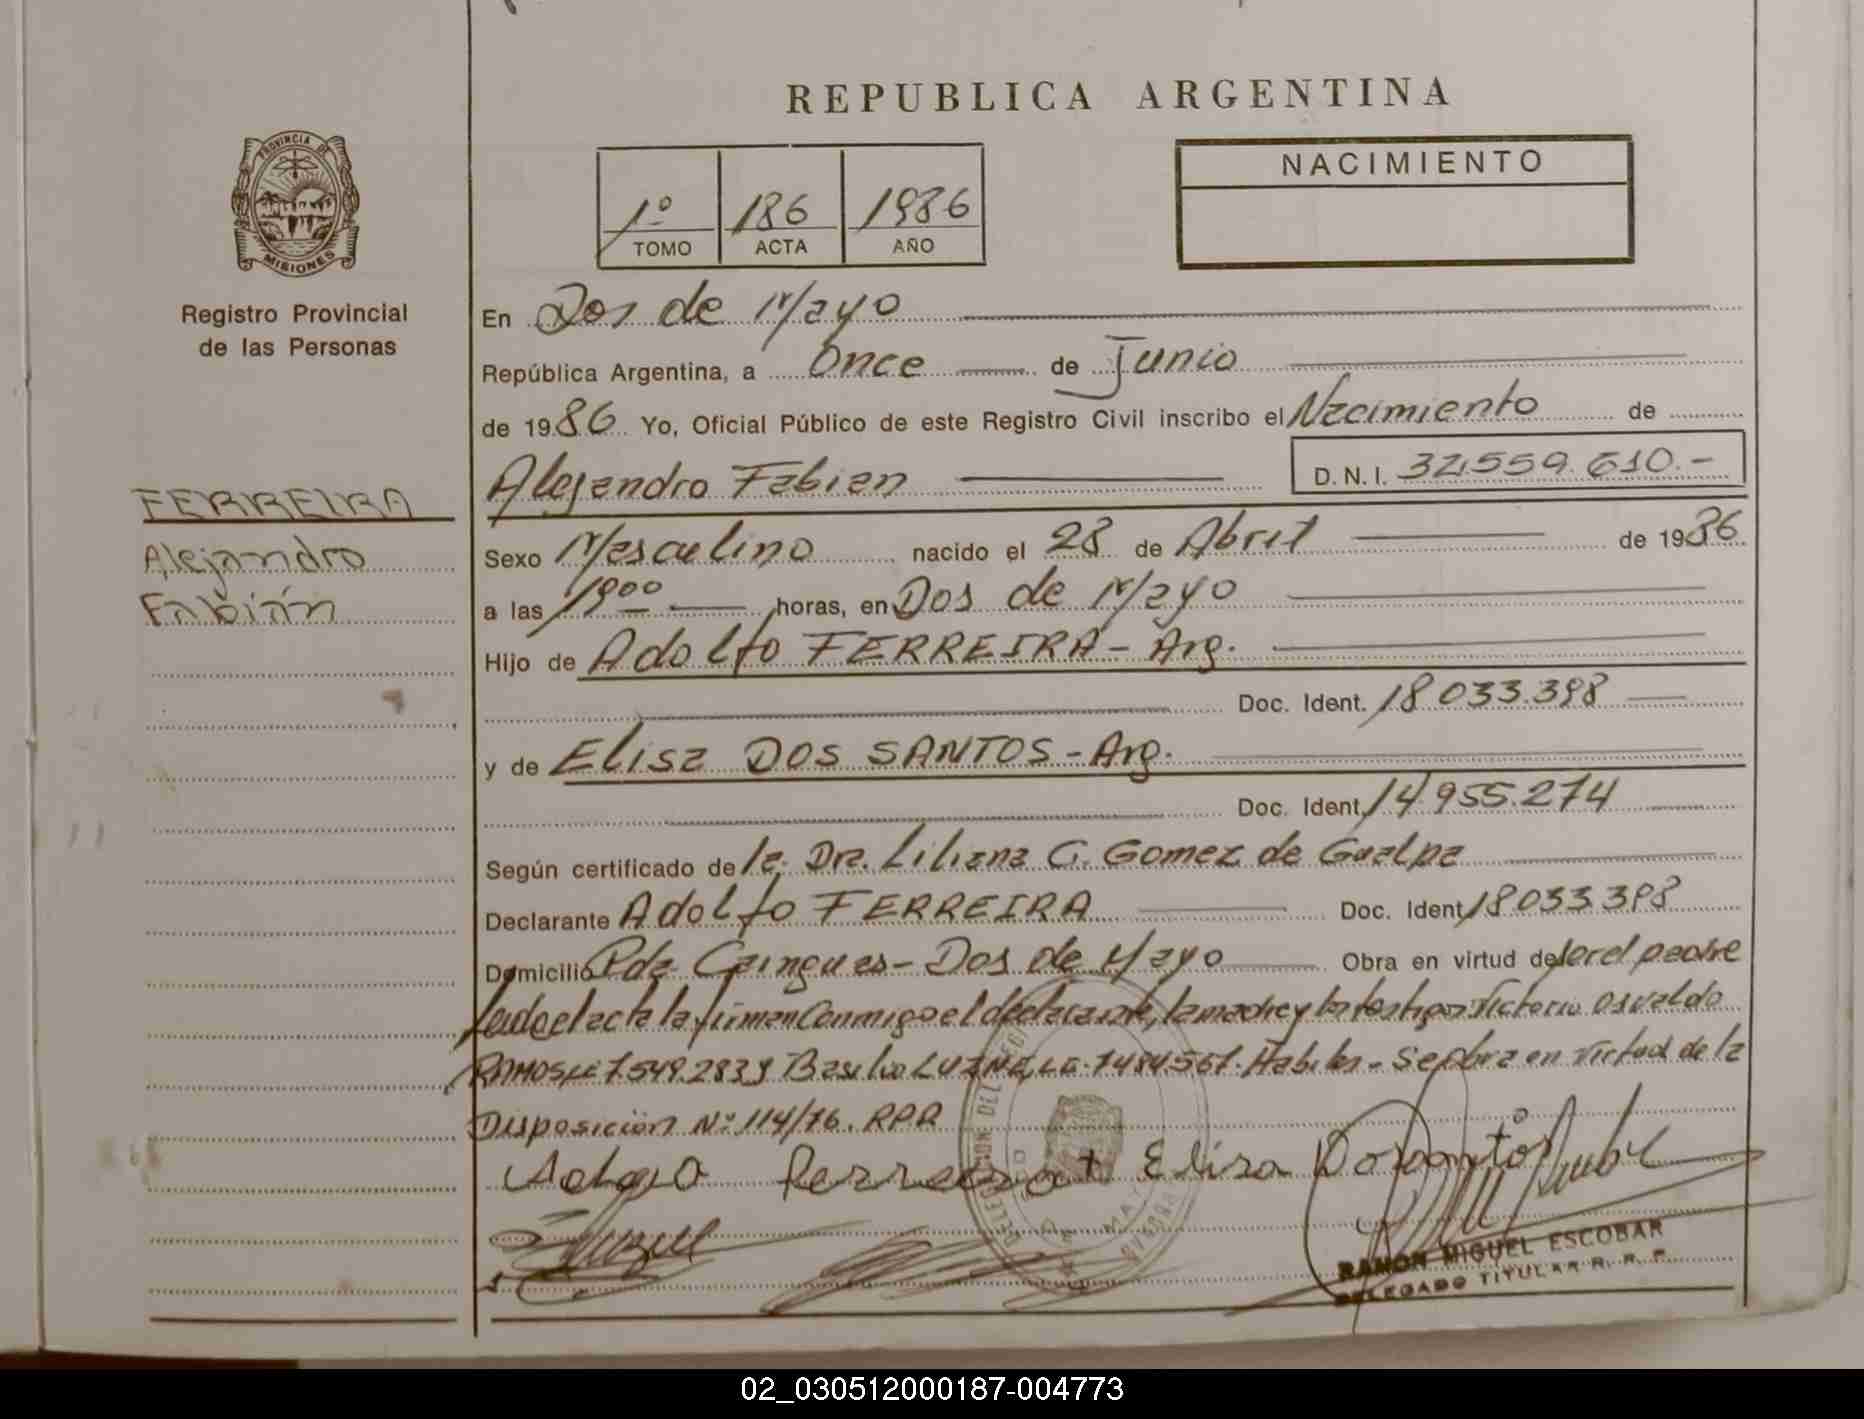 REPUBLICA ARGENTINA
PROVINCIA DE
MISIONES
Registro Provincial
de las Personas
1º 186 1986
TOMO ACTA AÑO
NACIMIENTO
En Dos de Mayo
República Argentina, a Once de Junio
de 1986 Yo, Oficial Público de este Registro Civil inscribo el Nacimiento de
Alejandro Fabian D.N.I. 32.559.610.-
FERREIRA
Alejandro
Fabián
Sexo Masculino nacido el 28 de Abril de 1986
a las 19 00 horas, en Dos de Mayo
Hijo de Adolfo FERREIRA - Arg.
Doc. Ident. 18 033.398
y de Elisa DOS SANTOS - Arg.
Doc. Ident. 14 955.274
Según certificado de la Dra. Liliana C. Gomez de Gualpa
Declarante Adolfo FERREIRA Doc. Ident. 18 033 398
Domicilio Pda. Cainguas - Dos de Mayo Obra en virtud de ser el padre
Leida el acta la firman Conmigo el declarante, la madre y los testigos Victorio Osvaldo
RAMOS 7.549.283 y Basilio 7484567. Habiles - Se obra en virtud de la
Disposición Nº 114/76. RPR
Ferreira Elisa Dosantos
RAMON MIGUEL ESCOBAR
DELEGADO TITULAR R. R. P.
02_030512000187-004773